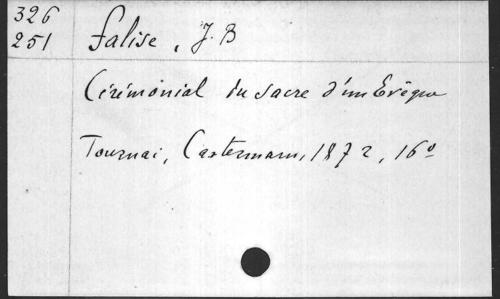 326
251 Falise, J. B
Cérémonial du sacre d'un Evêque
Tournai, Casterman, 1872, 16º